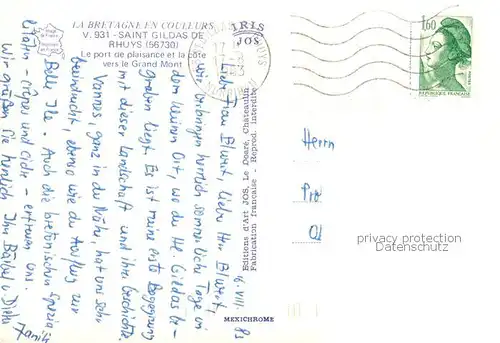 LA BRETAGNE EN COULEURS
V. 931 - SAINT GILDAS DE
RHUYS (56730)
Le port de plaisance et la côte
vers le Grand Mont
IRIS
JOS
16. VIII. 83
Liebe Frau Blümit, lieber Herr Blümit,
wir verbringen herrlich sommerliche Tage in
dem kleinen Ort, wo der Hl. Gildas be-
graben liegt. Es ist meine erste Begegnung
mit dieser Landschaft und ihrer Geschichte.
Vannes, ganz in der Nähe, hat uns sehr
beeindruckt, ebenso wie der Ausflug zur
Belle Ile. Auch die bretonischen Spezia-
litäten - crêpes und cidre - erfreuen uns.
Wir grüßen Sie herzlich Ihre Bärbel u. Dieter
Editions d'Art JOS, Le Doaré, Châteaulin
Fabrication française - Reprod. interdite
MEXICHROME
1,60
REPUBLIQUE FRANÇAISE
Herrn
Pro
privacy protection
Datenschutz